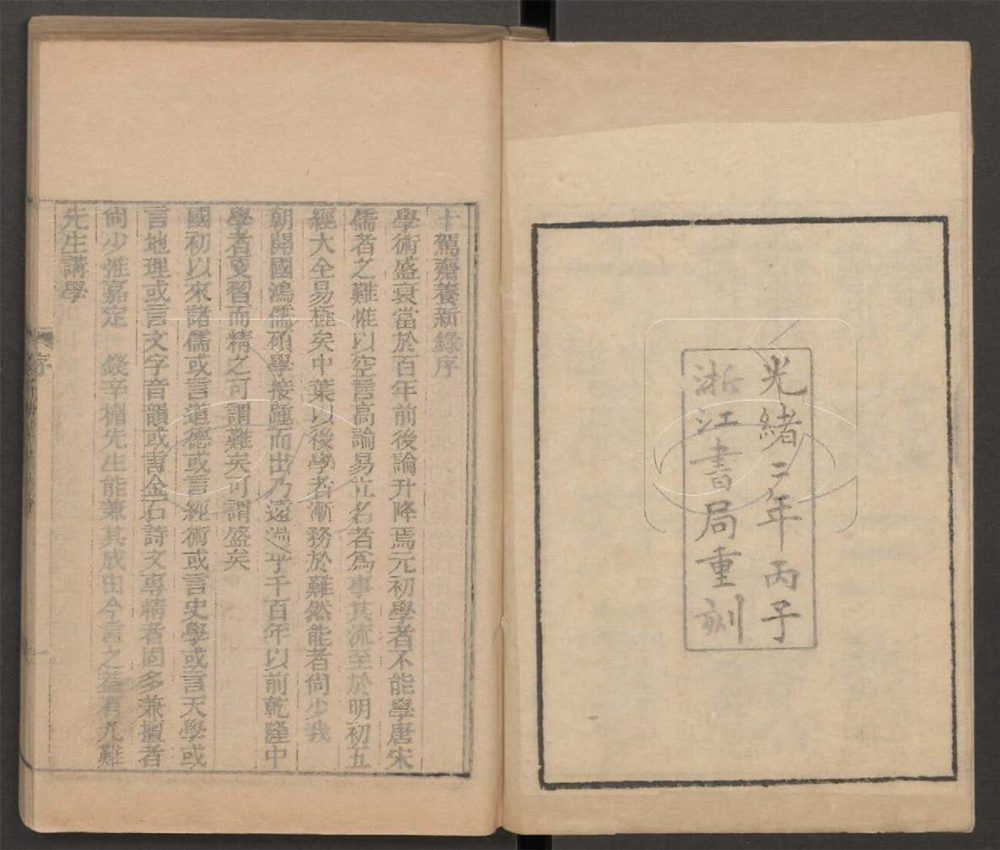 光緒二年丙子
浙江書局重刻
十駕齋養新錄序
學術盛衰當於百年前後論升降焉元初學者不能學唐宋
儒者之難惟以空言高論易立名者爲事其流至於明初五
經大全易極矣中葉以後學者漸務於難然能者尙少我
朝開國鴻儒碩學接踵而出乃遠過乎千百年以前乾隆中
學者更習而精之可謂難矣可謂盛矣
國初以來諸儒或言道德或言經術或言史學或言天學或
言地理或言文字音韻或言金石詩文專精者固多兼擅者
尙少惟嘉定 錢辛楣先生能兼其成由今言之蓋有九難
先生講學
序
一